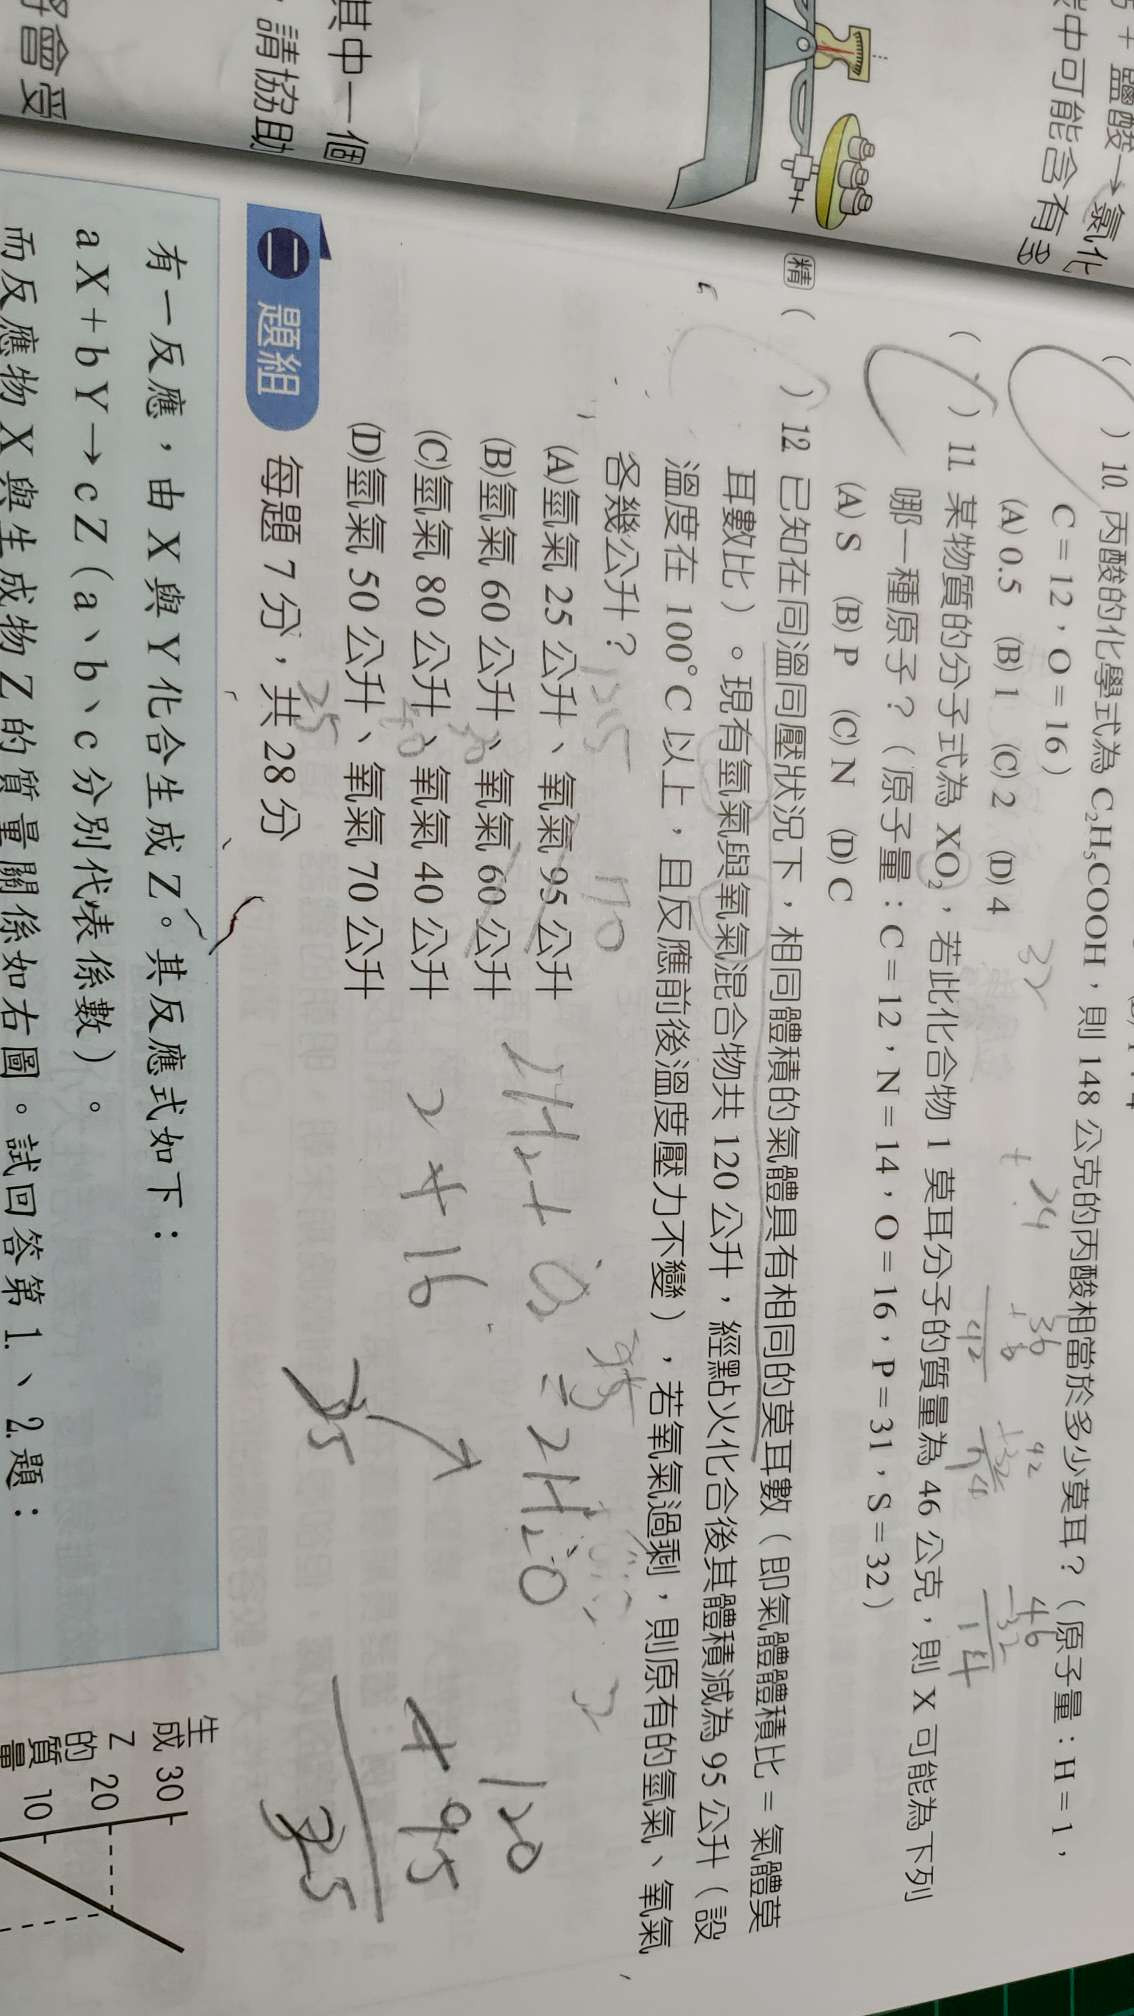 + 鹽酸→氯化
中可能含有多
其中一個
，請協助
將會受
( ) 10. 丙酸的化學式為 C₂H₅COOH，則 148 公克的丙酸相當於多少莫耳？（原子量：H＝1，
C＝12，O＝16）
(A) 0.5 (B) 1 (C) 2 (D) 4
32
+ 24
36
+ 6
42
92
46
－32
14
( ) 11. 某物質的分子式為 XO₂，若此化合物 1 莫耳分子的質量為 46 公克，則 X 可能為下列
哪一種原子？（原子量：C＝12，N＝14，O＝16，P＝31，S＝32）
(A) S (B) P (C) N (D) C
精 ( ) 12. 已知在同溫同壓狀況下，相同體積的氣體具有相同的莫耳數（即氣體體積比＝氣體莫
耳數比）。現有氫氣與氧氣混合物共 120 公升，經點火化合後其體積減為 95 公升（設
溫度在 100°C 以上，且反應前後溫度壓力不變），若氧氣過剩，則原有的氫氣、氧氣
各幾公升？
(A)氫氣 25 公升、氧氣 95 公升
(B)氫氣 60 公升、氧氣 60 公升
(C)氫氣 80 公升、氧氣 40 公升
(D)氫氣 50 公升、氧氣 70 公升
2H₂+ O₂ = 2H₂O
2 + 16
120
95
二 題組 每題 7 分，共 28 分
有一反應，由 X 與 Y 化合生成 Z。其反應式如下：
aX＋bY→cZ（a、b、c 分別代表係數）。
而反應物 X 與生成物 Z 的質量關係如右圖。試回答第 1.、2.題：
生成
Z
的
質
量
30
20
10